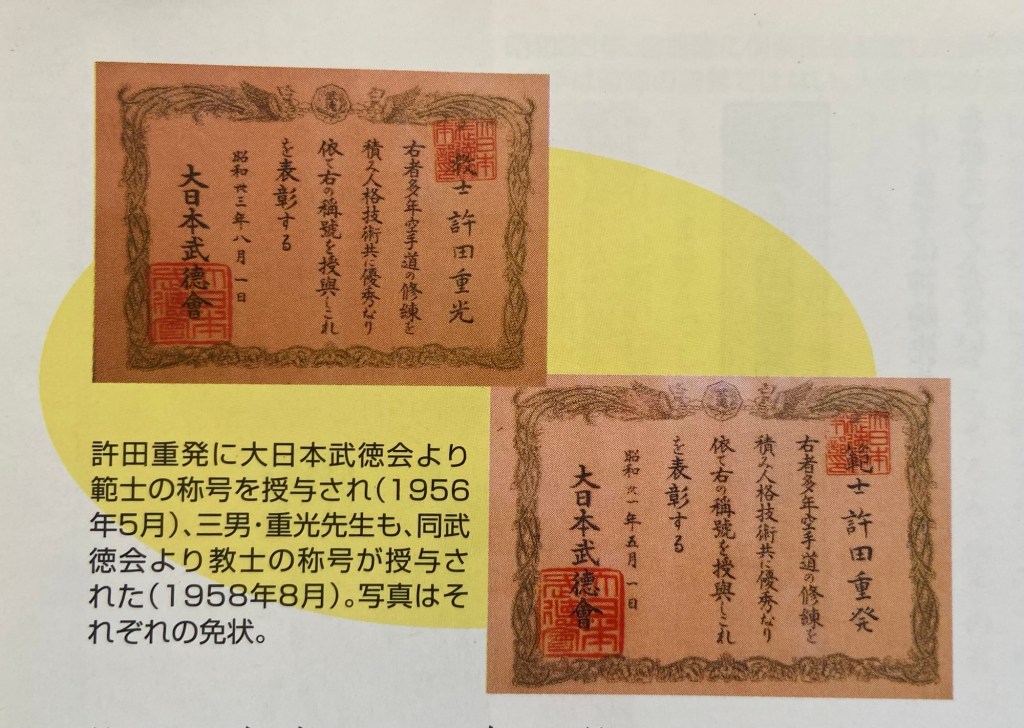 教士 許田重光
右者多年空手道の修練を
積み人格技術共に優秀なり
依て右の稱號を授與しこれ
を表彰する
昭和卅三年八月一日
大日本武徳會
範士 許田重発
右者多年空手道の修練を
積み人格技術共に優秀なり
依て右の稱號を授與しこれ
を表彰する
昭和卅一年五月一日
大日本武徳會
許田重発に大日本武徳会より
範士の称号を授与され(1956
年5月)、三男・重光先生も、同武
徳会より教士の称号が授与さ
れた(1958年8月)。写真はそ
れぞれの免状。